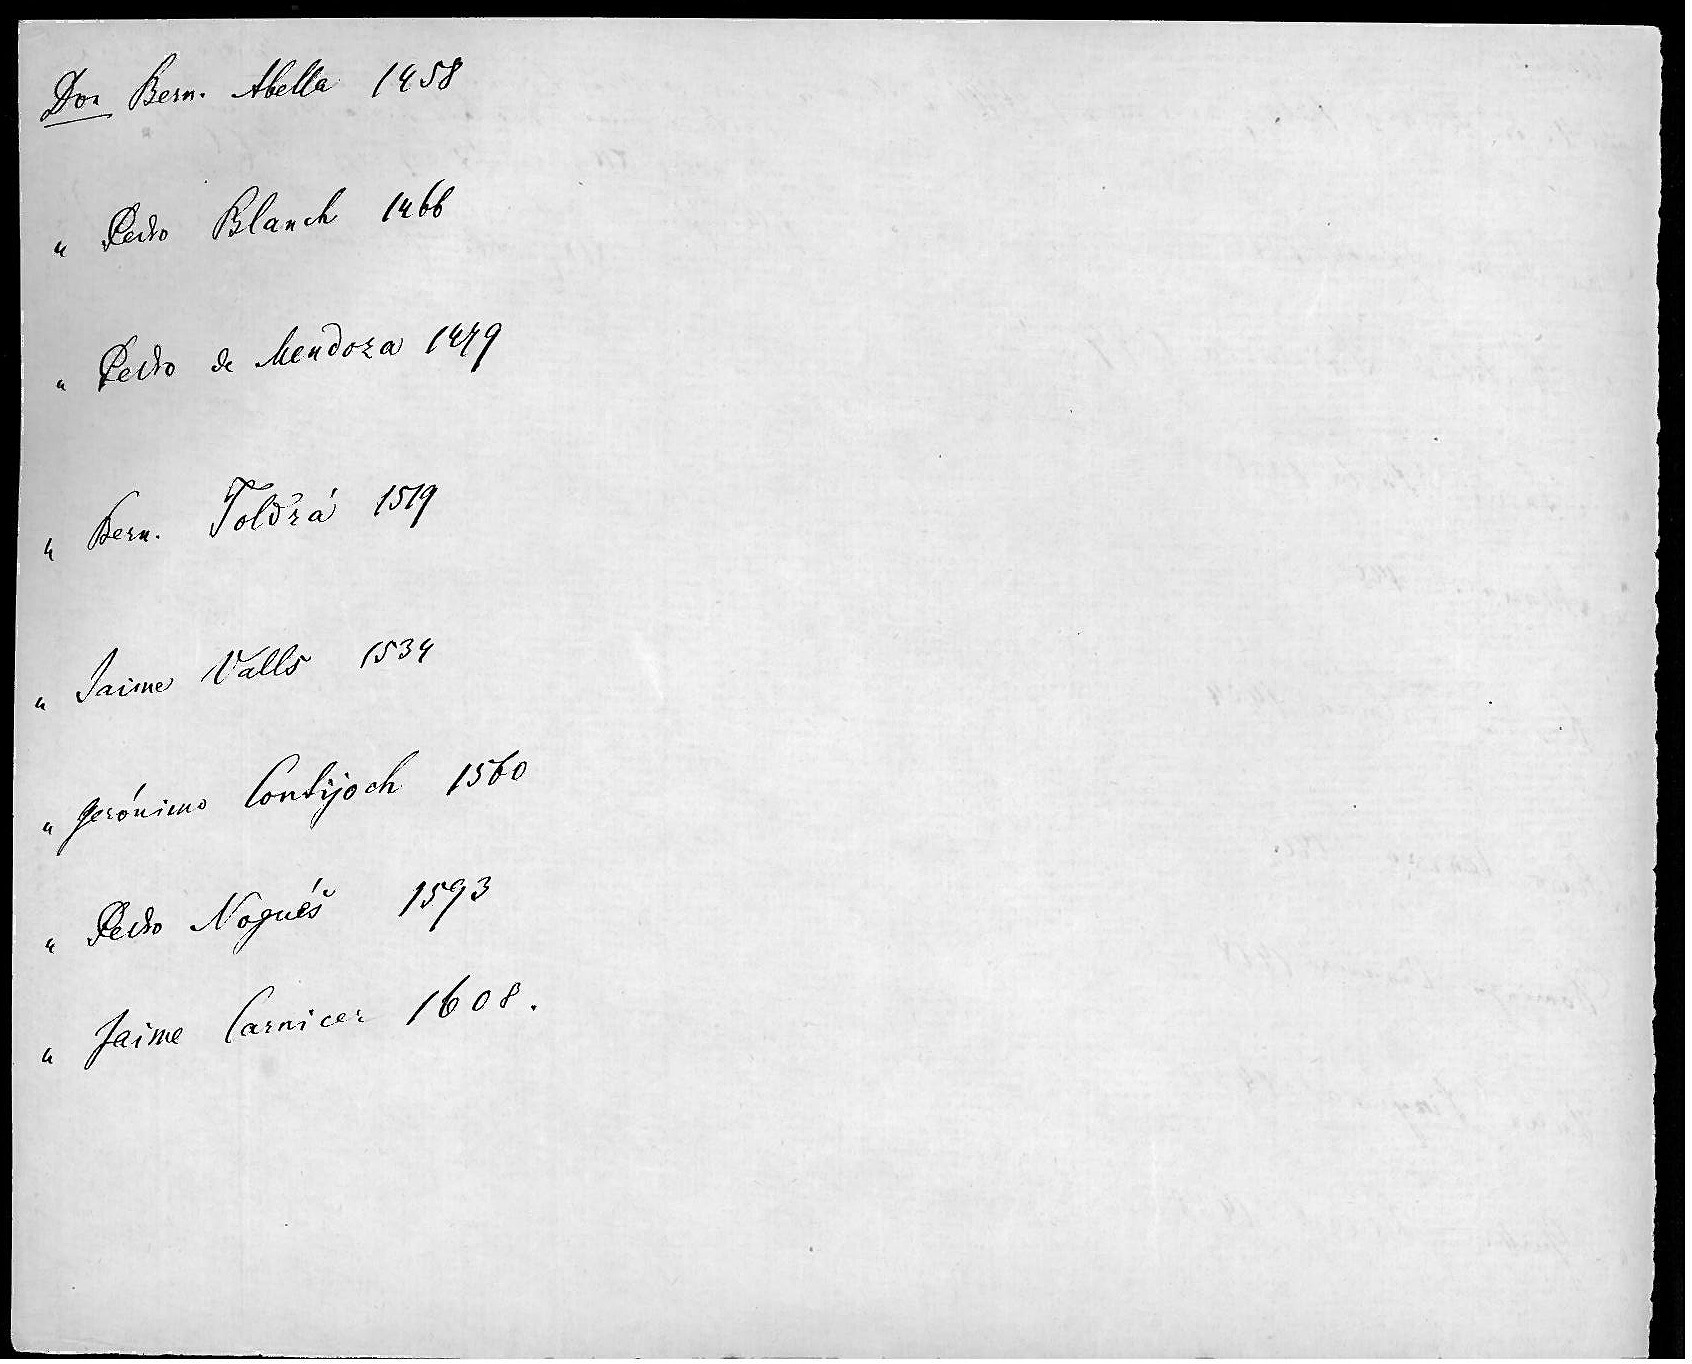 Don Bern. Abella 1458
" Pedro Blanch 1466
" Pedro de Mendoza 1479
" Bern. Toldrá 1519
" Jaime Valls 1534
" Gerónimo Contijoch 1560
" Pedro Nogués 1593
" Jaime Carnicer 1608.